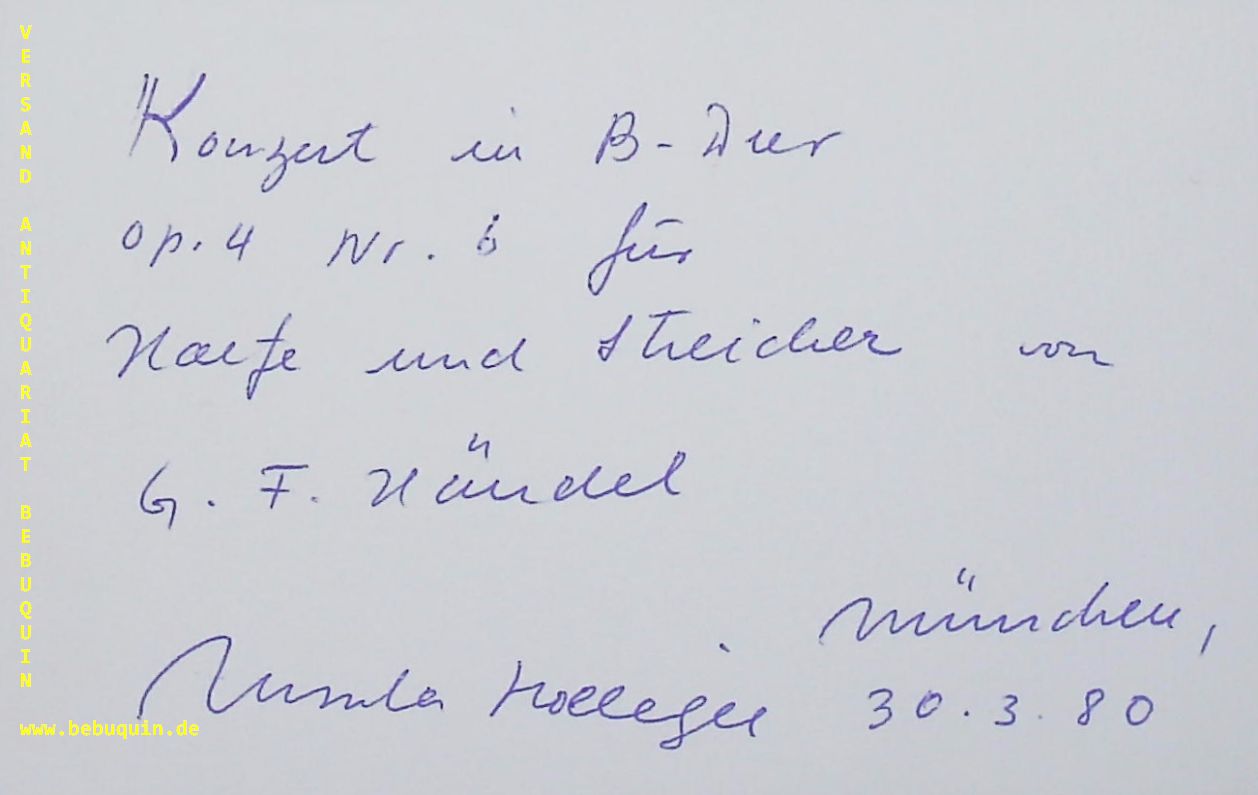 VERSAND ANTIQUARIAT BEBUQUIN
Konzert in B-Dur
op. 4 Nr. 6 für
Harfe und Streicher von
G. F. Händel
München,
Ursula Holliger 30.3.80
www.bebuquin.de